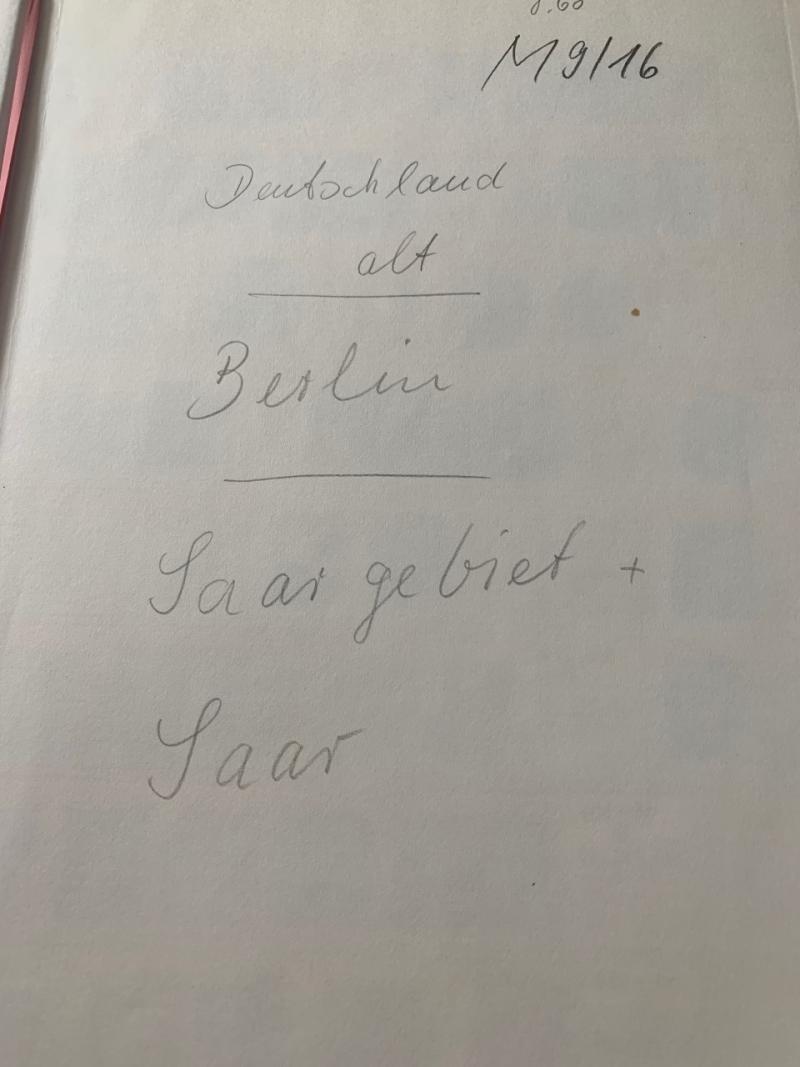 M 9/16
Deutschland
alt
Berlin
Saargebiet +
Saar